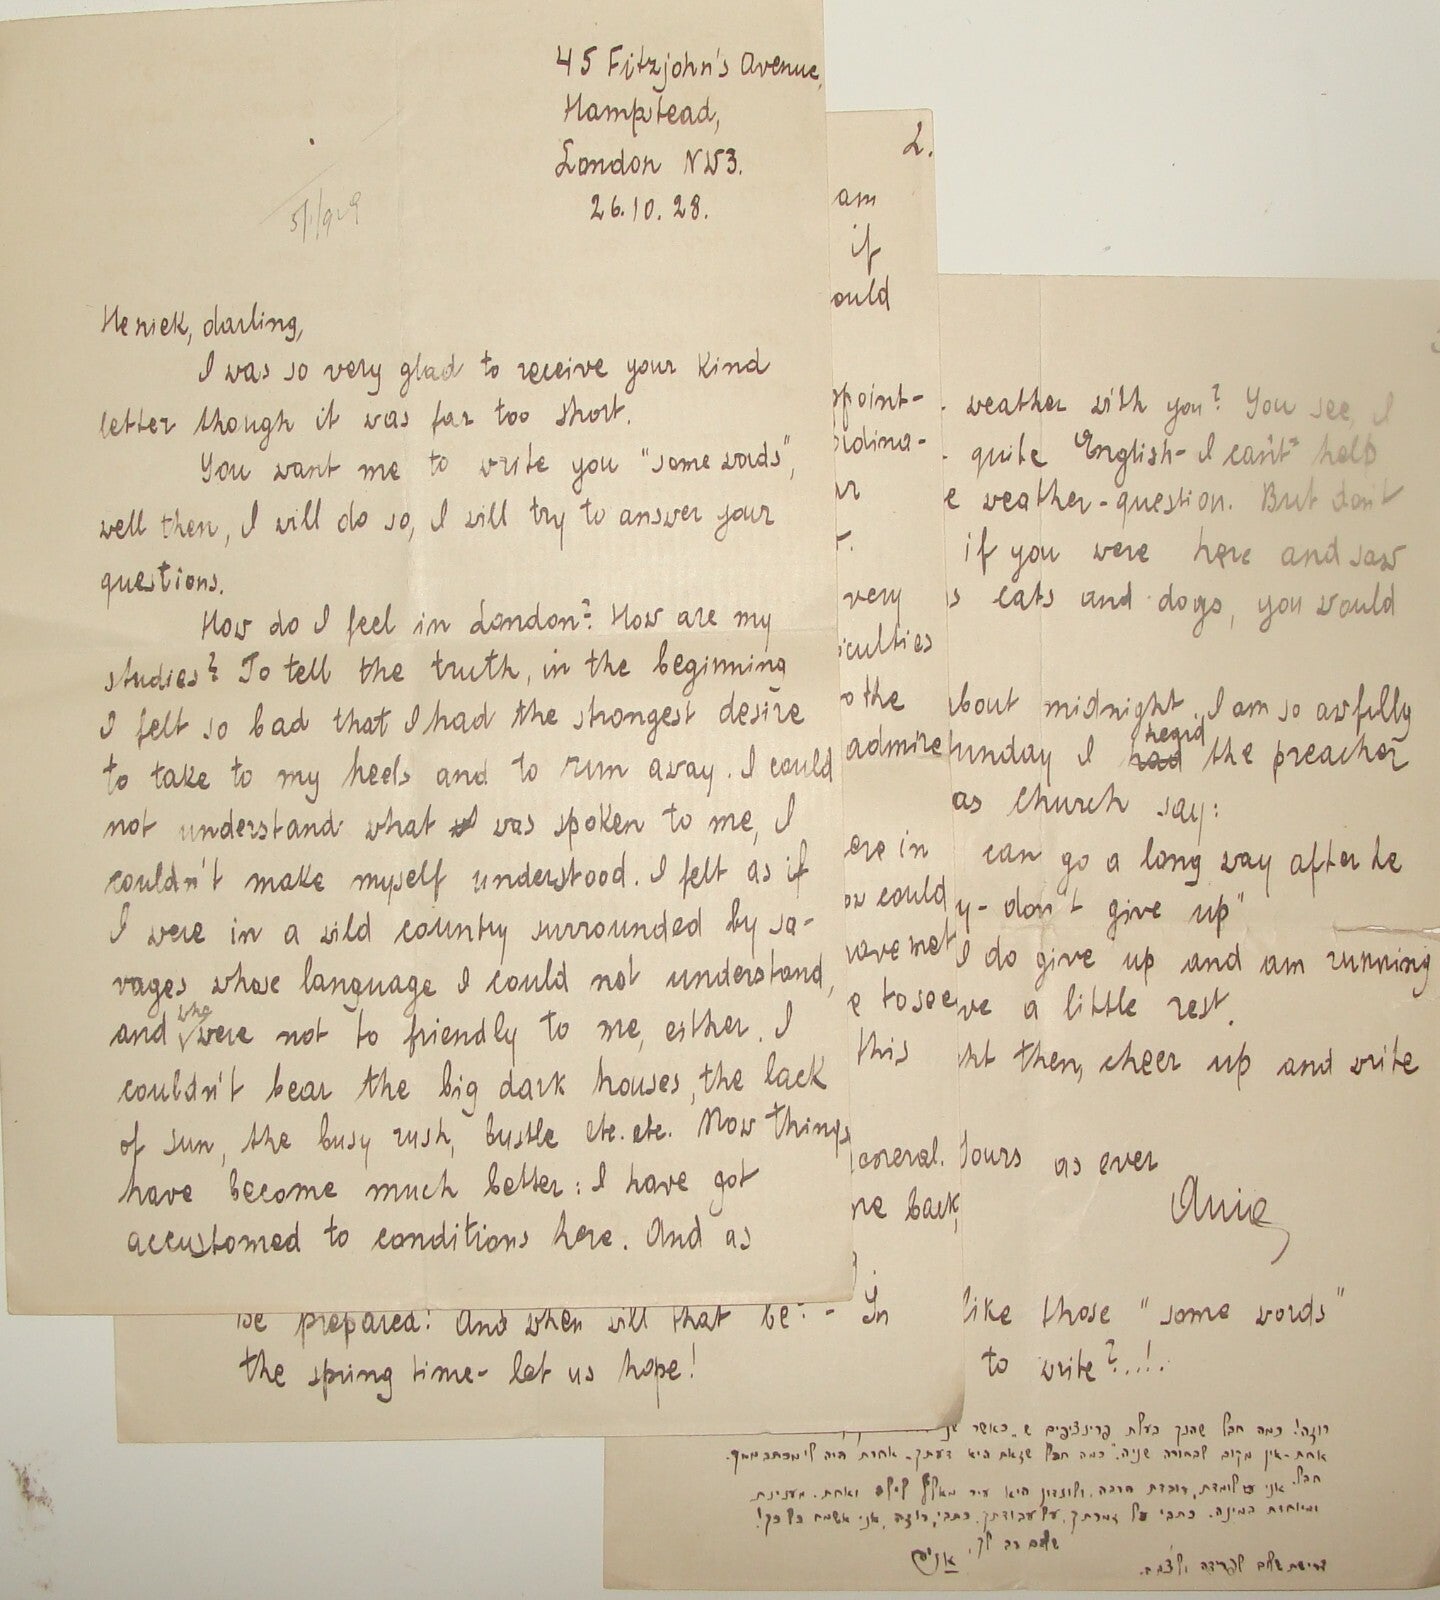 45 Fitzjohn's Avenue,
Hampstead,
London NW3.
26.10.28.
Heniek, darling,
I was so very glad to receive your kind
letter though it was far too short.
You want me to write you "some words",
well then, I will do so, I will try to answer your
questions.
How do I feel in London? How are my
studies? To tell the truth, in the beginning
I felt so bad that I had the strongest desire
to take to my heels and to run away. I could
not understand what was spoken to me, I
couldn't make myself understood. I felt as if
I were in a wild country surrounded by sa-
vages whose language I could not understand,
and who were not to friendly to me, either. I
couldn't bear the big dark houses, the lack
of sun, the busy rush, bustle etc. etc. Now things
have become much better: I have got
accustomed to conditions here. And as
2.
am
if
ould
ppoint-
rdina-
ur
r.
very
iculties
o the
admire
ere in
ow could
have met
e to see
this
general.
me back,
be prepared? And when will that be? - In
the spring time - let us hope!
weather with you? You see, I
quite English - I can't help
e weather-question. But don't
if you were here and saw
s cats and dogs, you would
bout midnight. I am so awfully
Sunday I heard the preacher
as Church say:
can go a long way after he
y - don't give up"
I do give up and am running
ve a little rest.
ht then, cheer up and write
Yours as ever
Ania
like those "some words"
to write?..!.
רוזה! כמה חבל שהנך בעלת פרינציפים ש"כאשר
אחת-אין מקום לבחורה שניה." כמה חבל שזאת היא דעתך. אחרת היה לי מכתב ממך.
חבל. אני לומדת, עובדת הרבה. ולונדון היא עיר מאלף לילה ואחת. מענינת
ומיוחדת במינה. כתבי על עבודתך. כתבי, רוזה, אני אשמח כל כך!
שלום רב לך,
אניה
דרישת שלום לפרידה